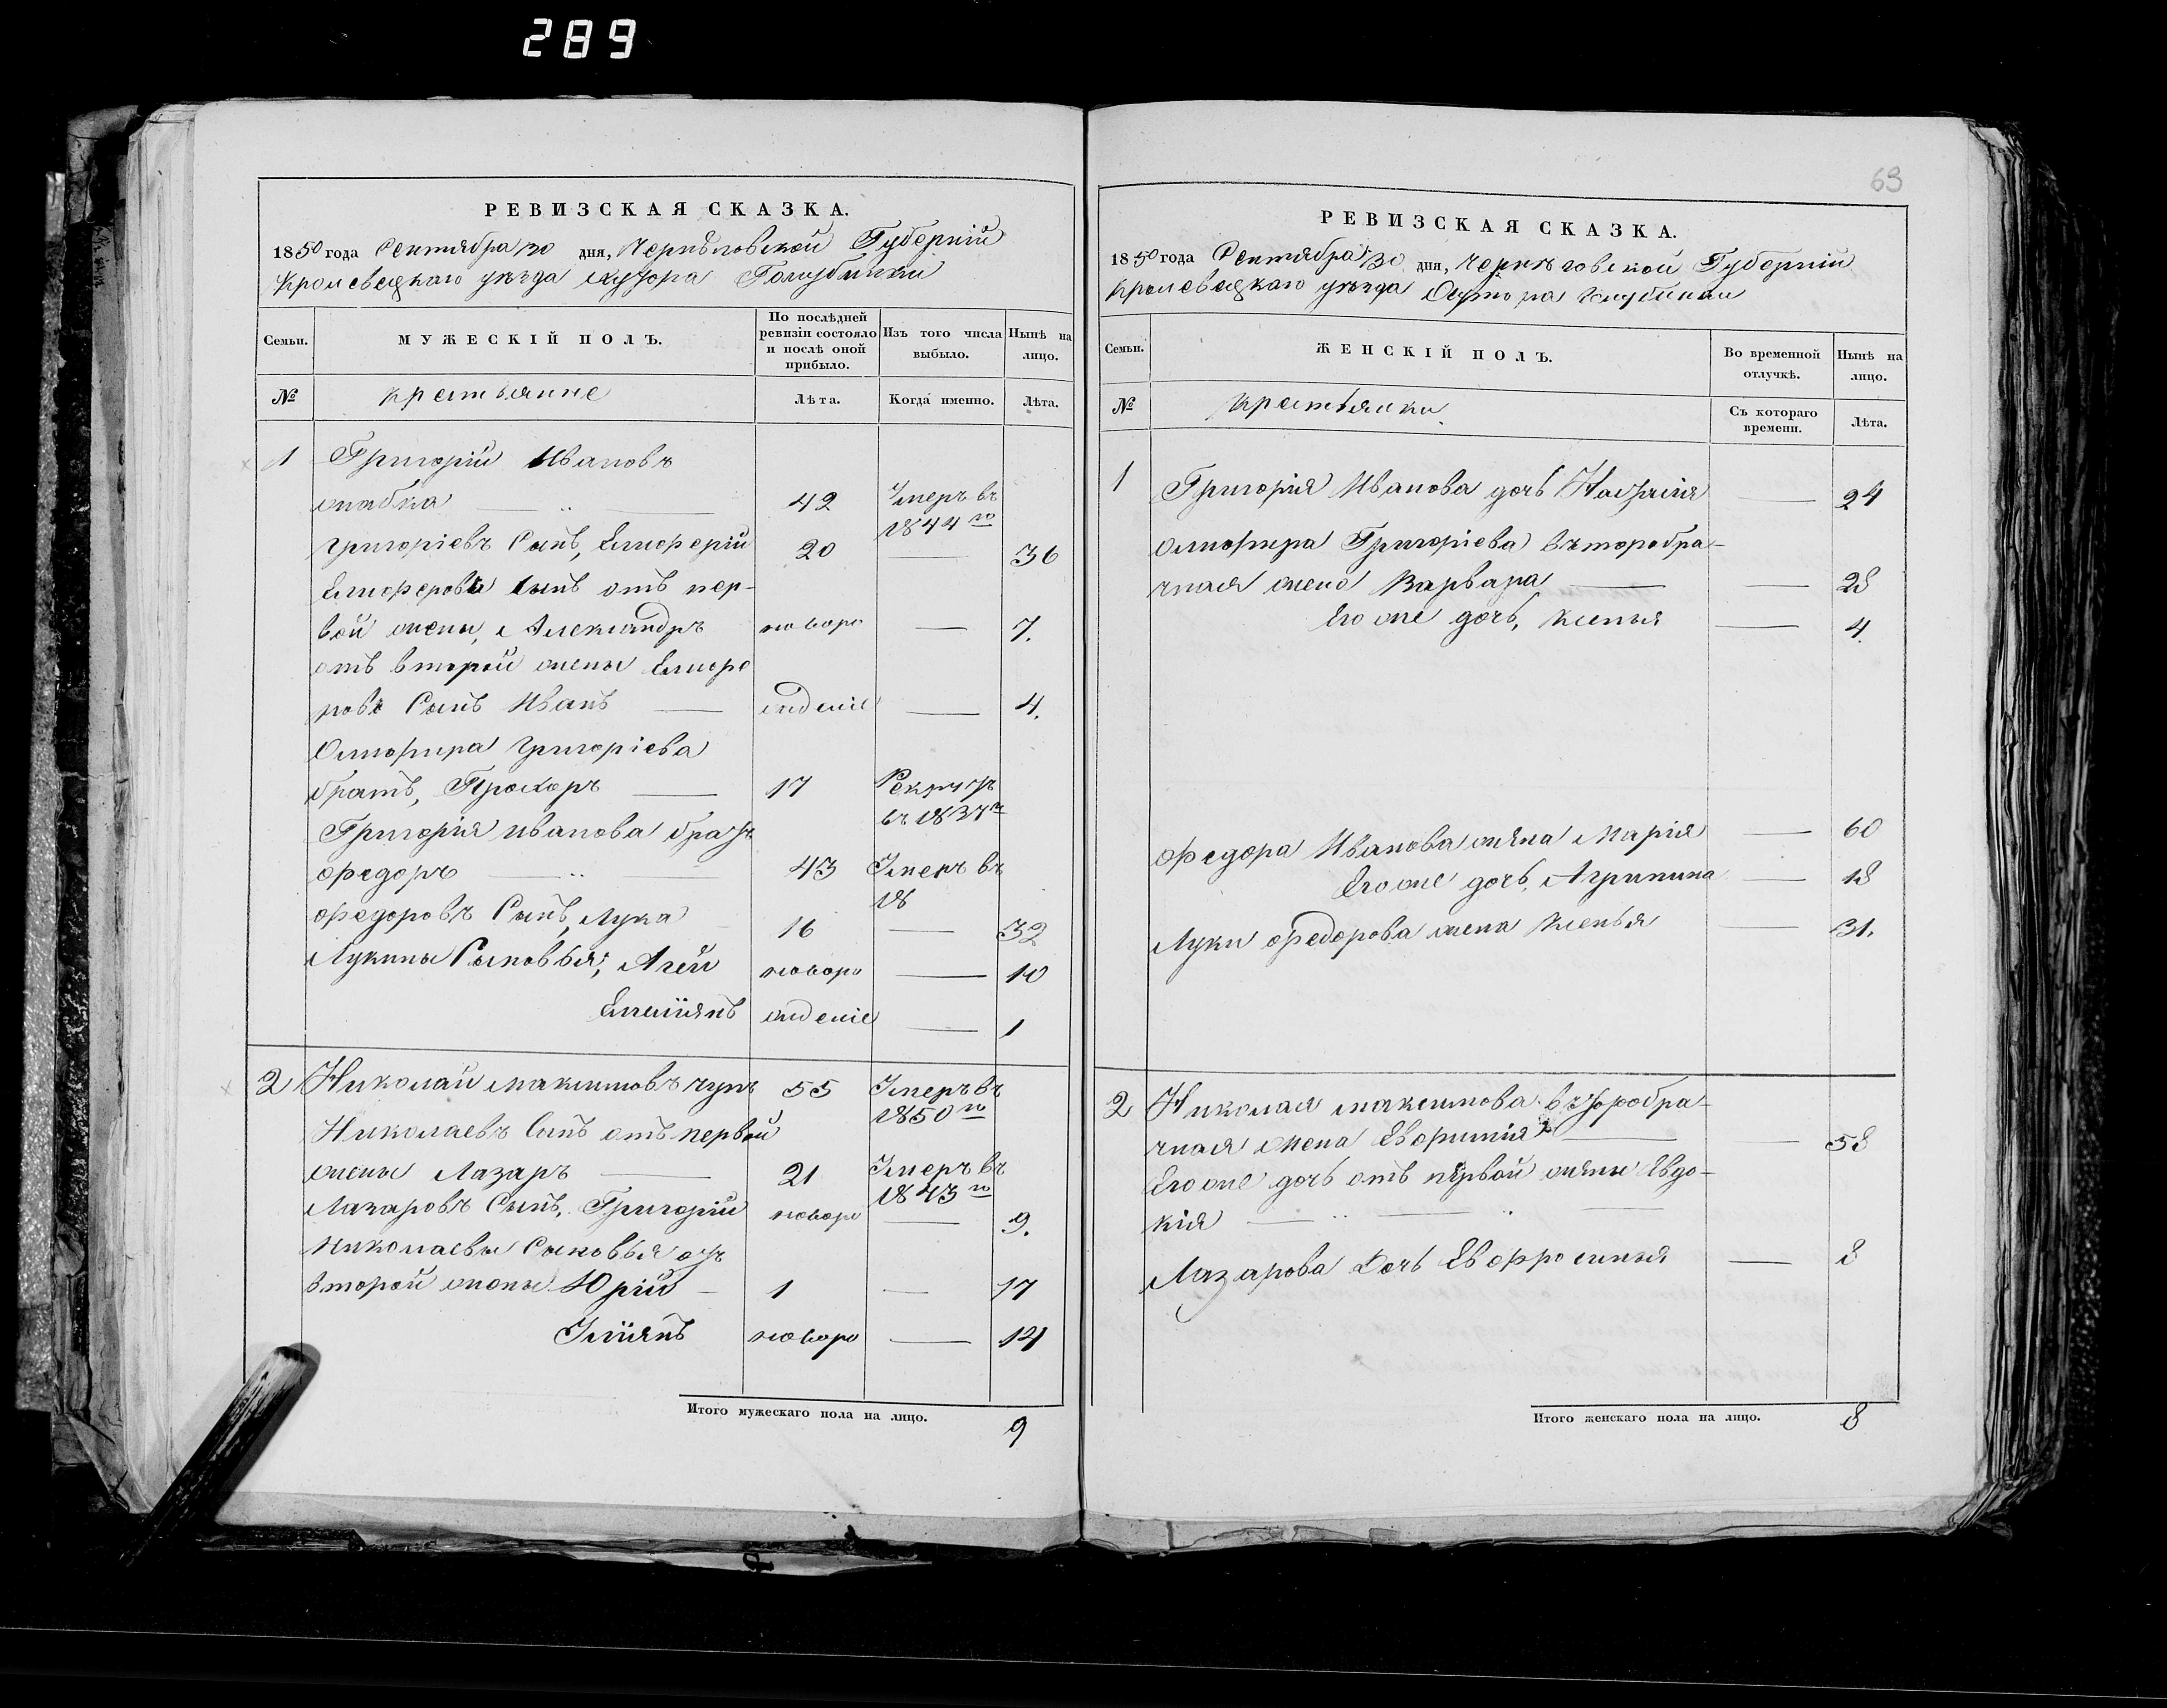 289
РЕВИЗСКАЯ СКАЗКА.
1850 года Сентября 30 дня, Черниговской Губерніи
Кролевецкаго уѣзда хутора
Семьи. МУЖЕСКІЙ ПОЛЪ. По послѣдней ревизіи состояло и послѣ оной прибыло. Изъ того числа выбыло. Нынѣ на лицо.
№ крестьяние Лѣта. Когда именно. Лѣта.
1 Григорій Ивановъ
42 Умеръ въ 1844 го
Григоріевъ Сынъ, Елисферій 20 — 36
Елисферовъ Сынъ отъ пер-
вой жены, Александръ новоро — 7.
отъ второй жены Елисфе
ровъ Сынъ Иванъ — жденіе — 4.
Григоріева
братъ, Прохоръ — 17 Рекрутъ въ 1837 г
Григорія иванова братъ
федоръ — 43 Умеръ въ 18
федоровъ Сынъ, Лука 16 — 32
Лукины Сыновья; Агей новоро — 10
Емеліянъ жденіе — 1
2 Николай максимовъ чупъ 55 Умеръ въ 1850 го
Николаевъ Сынъ отъ первой
жены Лазаръ — 21 Умеръ въ 1843 го
Лазаровъ Сынъ, Григорій новоро — 9.
Николаевы Сыновья отъ
второй жены Юрій — 1 — 17
Уліянъ новоро — 14
Итого мужескаго пола на лицо. 9
69
РЕВИЗСКАЯ СКАЗКА.
1850 года Сентября 30 дня, Черниговской Губерніи
Кролевецкаго уѣзда
Семьи. ЖЕНСКІЙ ПОЛЪ. Во временной отлучкѣ. Нынѣ на лицо.
№ крестьянки. Съ котораго времени. Лѣта.
1 Григорія Иванова дочь Настасія — 24
Григоріева въторобра-
чная жена Варвара — — 28
Его же дочь, Ксенья — 4.
федора Иванова жена Марія — 60
Его же дочь, Агрипина — 18
Луки федорова жена Ксенья — 31.
2 Николая максимова въторобра-
чная жена Евфимія — — 58
Его же дочь отъ первой жены Евдо-
кія —
Лазарова Дочь Евфросинья — 8
Итого женскаго пола на лицо. 8